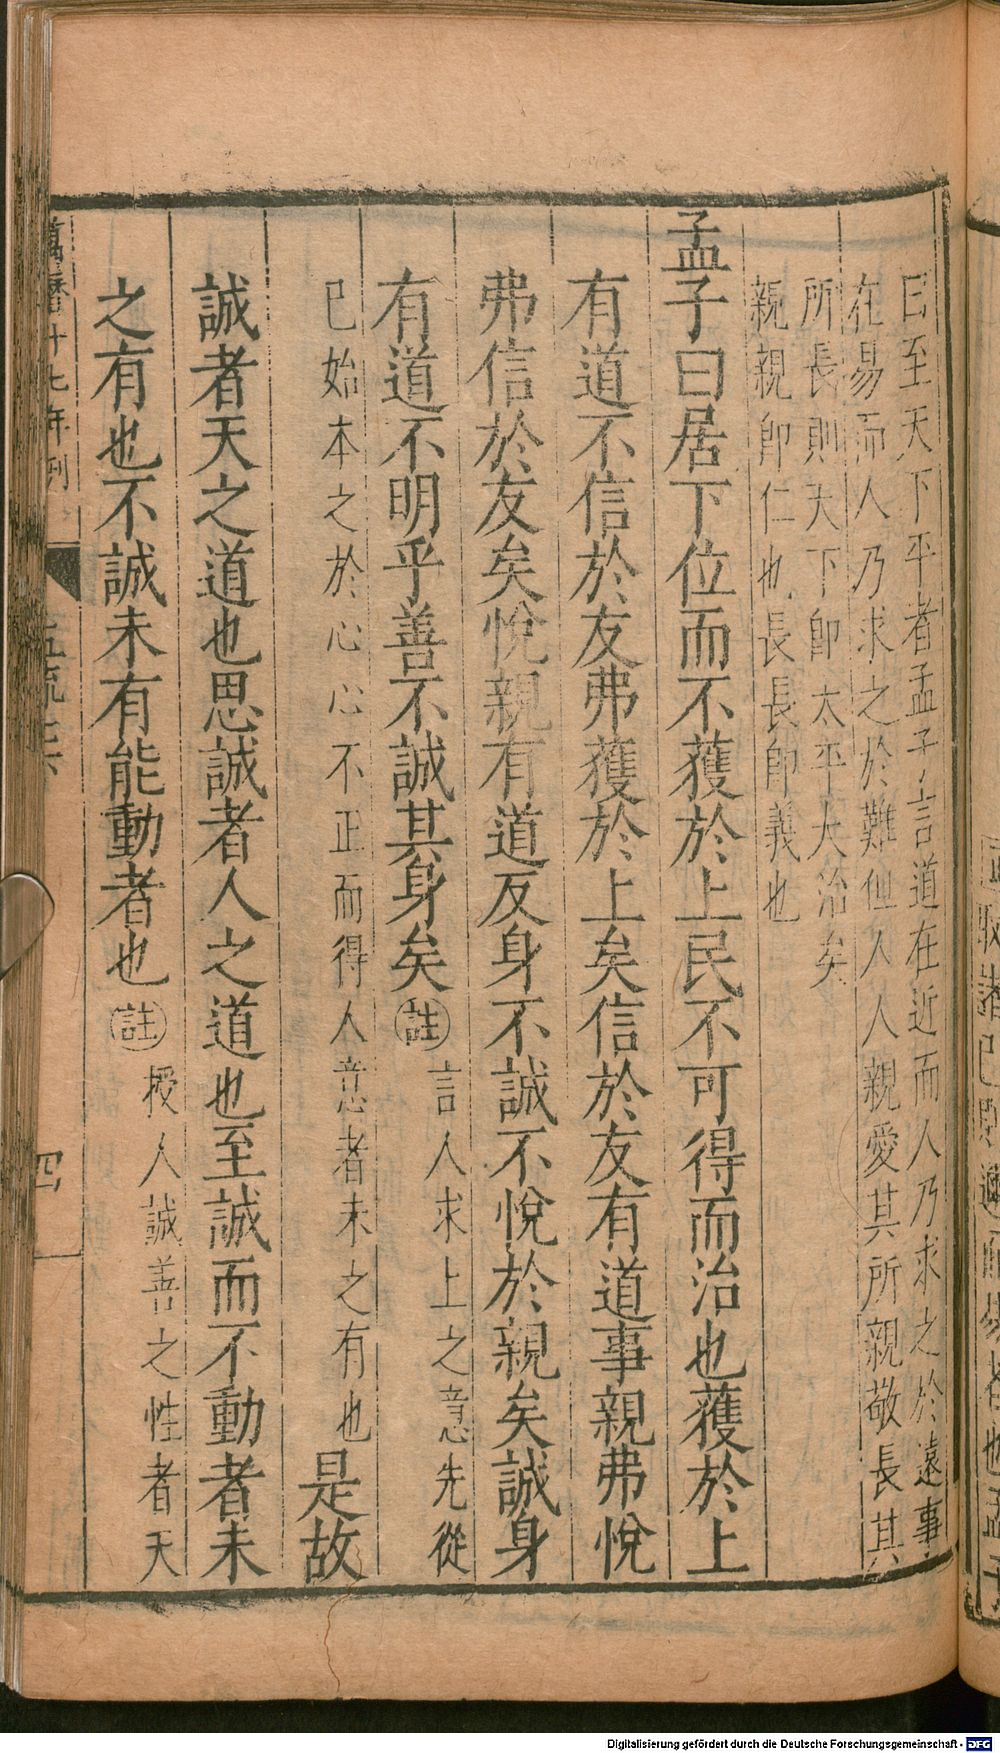 曰至天下平者孟子言道在近而人乃求之於遠事
在易而人乃求之於難但人人親愛其所親敬長其
所長則天下卽太平大治矣
親親卽仁也長長卽義也
孟子曰居下位而不獲於上民不可得而治也獲於上
有道不信於友弗獲於上矣信於友有道事親弗悅
弗信於友矣悅親有道反身不誠不悅於親矣誠身
有道不明乎善不誠其身矣註言人求上之意先從
已始本之於心心不正而得人意者未之有也是故
誠者天之道也思誠者人之道也至誠而不動者未
之有也不誠未有能動者也註授人誠善之性者天
萬曆十七年刊
四
Digitalisierung gefördert durch die Deutsche Forschungsgemeinschaft - DFG